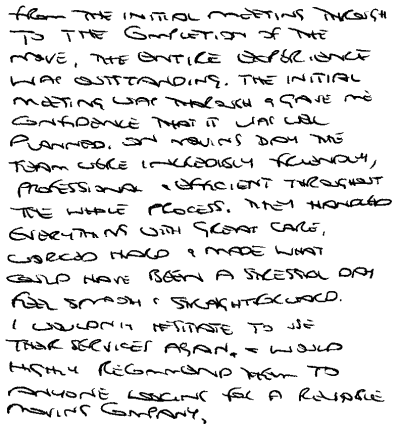 FROM THE INITIAL MEETING THROUGH
TO THE COMPLETION OF THE
MOVE, THE ENTIRE EXPERIENCE
WAS OUTSTANDING. THE INITIAL
MEETING WAS THOROUGH & GAVE ME
CONFIDENCE THAT IT WAS WELL
PLANNED. ON MOVING DAY THE
TEAM WERE INCREDIBLY FRIENDLY,
PROFESSIONAL & EFFICIENT THROUGHOUT
THE WHOLE PROCESS. THEY HANDLED
EVERYTHING WITH GREAT CARE,
WORKED HARD & MADE WHAT
COULD HAVE BEEN A STRESSFUL DAY
FEEL SMOOTH & STRAIGHTFORWARD.
I WOULDN'T HESITATE TO USE
THEIR SERVICES AGAIN, & WOULD
HIGHLY RECOMMEND THEM TO
ANYONE LOOKING FOR A RELIABLE
MOVING COMPANY.